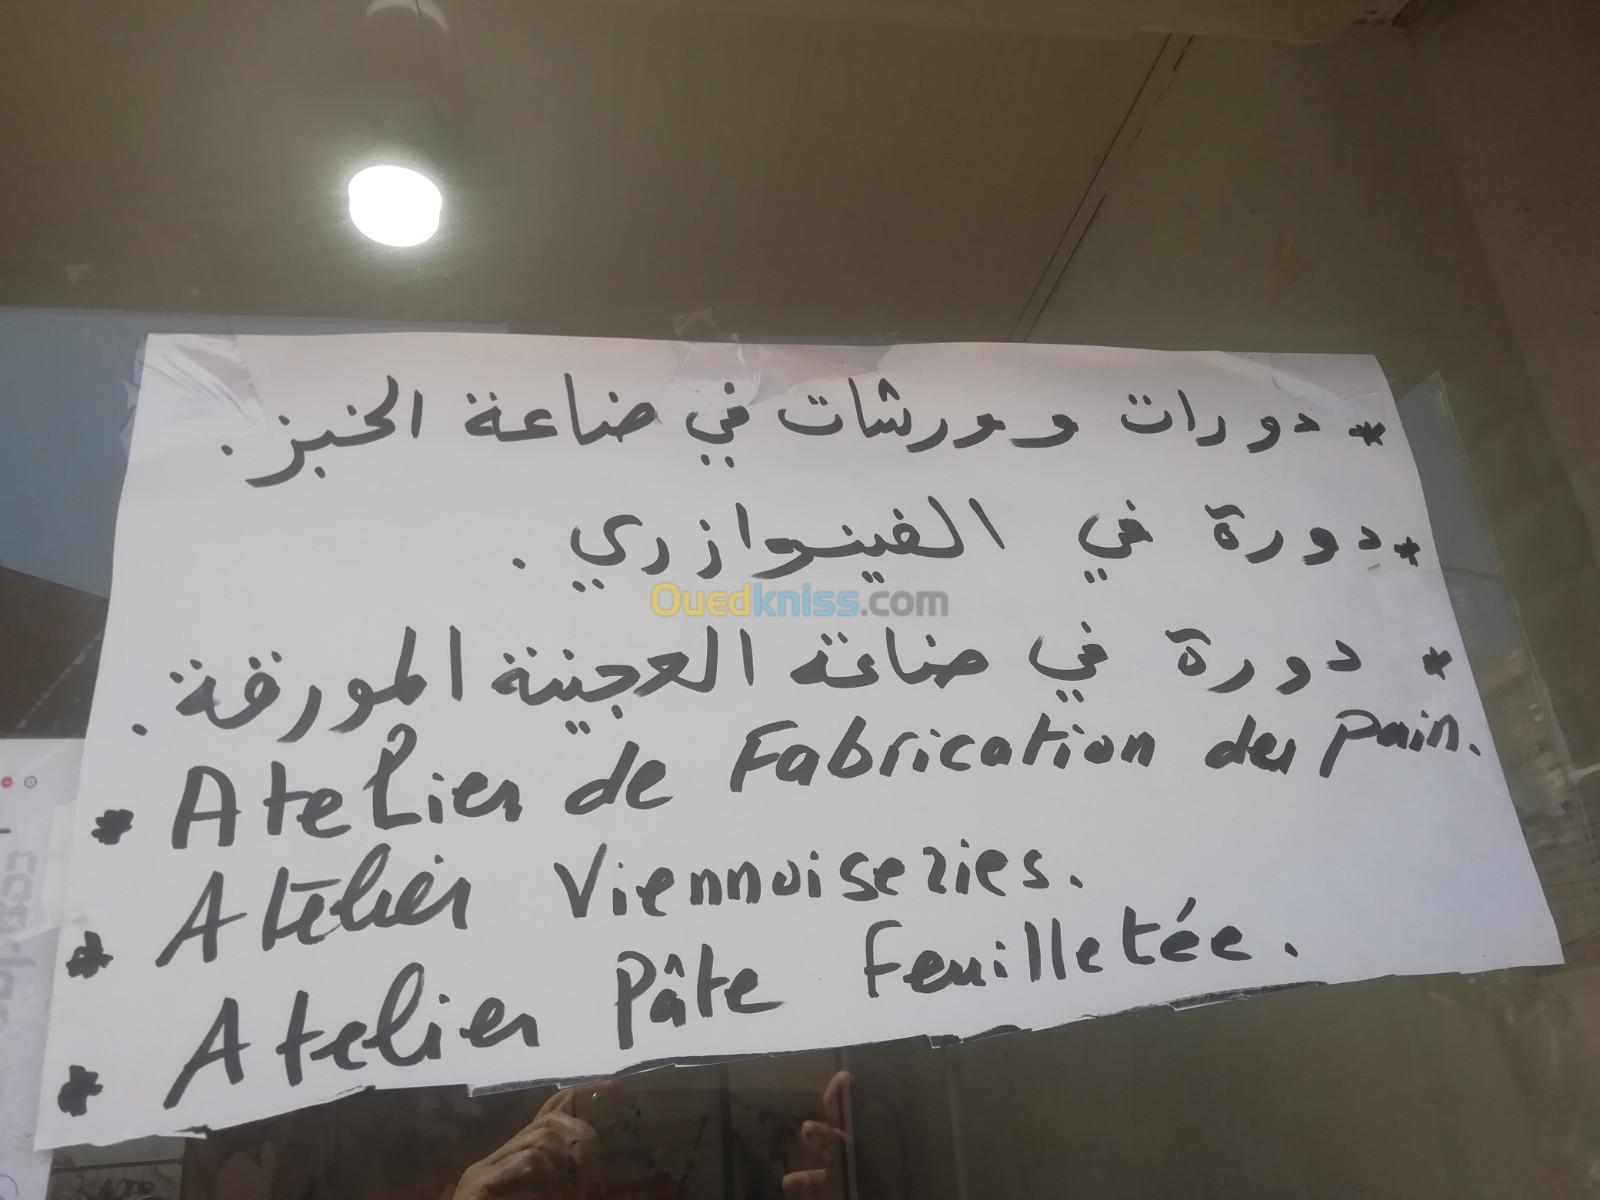 * دورات وورشات في صناعة الخبز.
* دورة في الفينوازري.
Ouedkniss.com
* دورة في صناعة العجينة المورقة.
* Atelier de Fabrication des pain.
* Atelier Viennoiseries.
* Atelier Pâte Feuilletée.